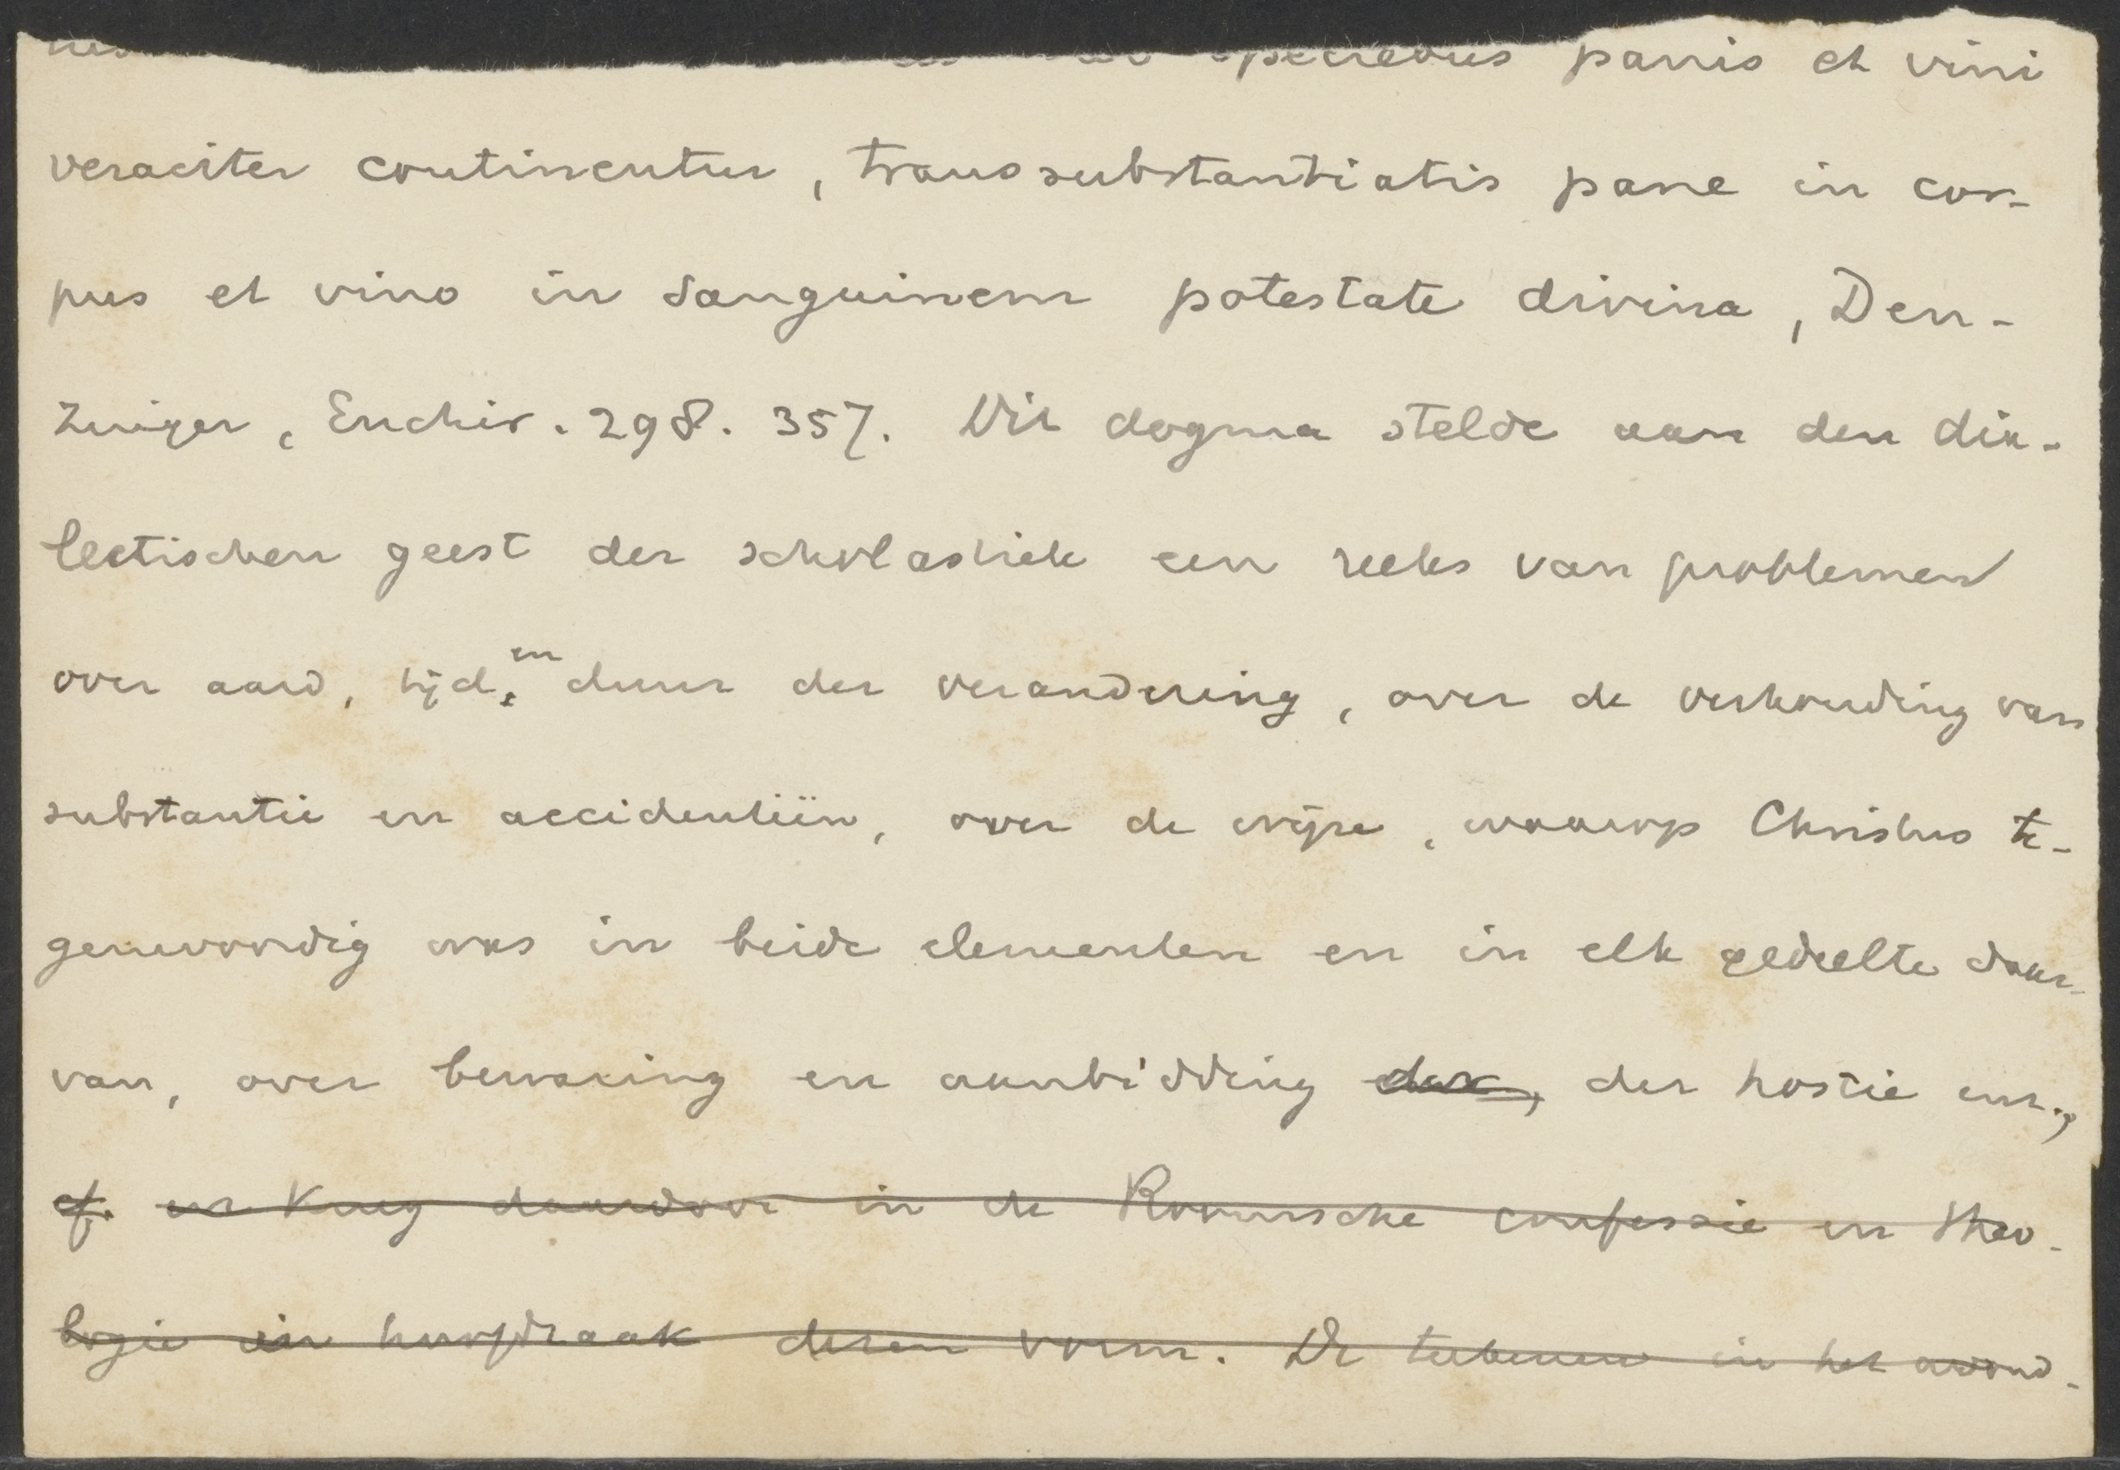 speciebus panis et vini
veraciter continentur, transsubstantiatis pane in cor-
pus et vino in sanguinem potestate divina, Den-
zinger, Enchir. 298. 357. Dit dogma stelde aan den dia-
lectischen geest der scholastiek een reeks van problemen
over aard, tijd, en duur der verandering, over de verhouding van
substantie en accidentiën, over de wijze, waarop Christus te-
genwoordig was in beide elementen en in elk gedeelte daar-
van, over bewaring en aanbidding der, der hostie enz.,
cf. en kreeg daardoor in de Roomsche confessie en theo-
logie in hoofdzaak dezen vorm. De teekenen in het avond-